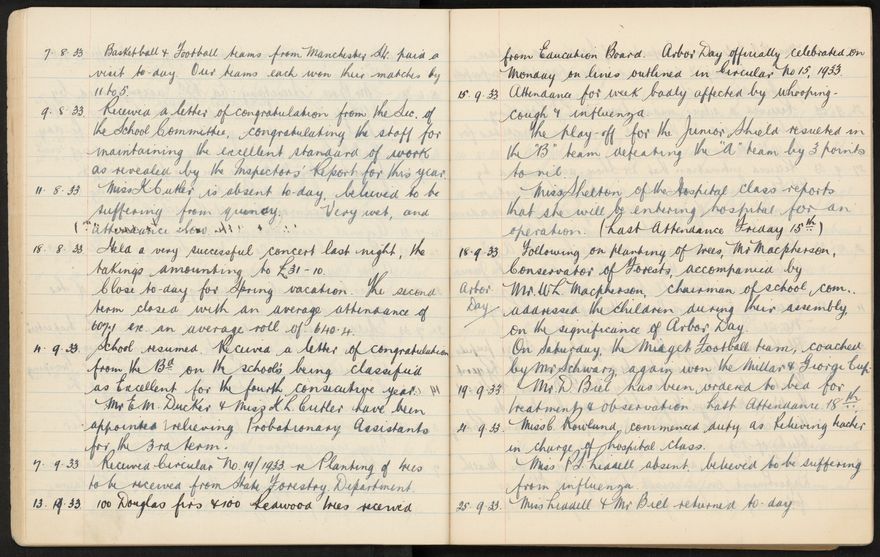 7. 8. 33 Basketball & Football teams from Manchester St. paid a
visit to-day. Our teams each won their matches by
11 to 5.
9. 8. 33 Received a letter of congratulation from the Sec. of
the School Committee, congratulating the staff for
maintaining the excellent standard of work
as revealed by the Inspectors' Report for this year.
11. 8. 33 Miss K Cutler is absent to-day, believed to be
suffering from quinsy. Very wet, and
attendance
18. 8. 33 Held a very successful concert last night, the
takings amounting to £31-10.
Close to-day for Spring vacation. The second
term closed with an average attendance of
on an average roll of 640.4.
4. 9. 33 School resumed. Received a letter of congratulation
from the Bd on the school's being classified
as Excellent for the fourth consecutive year.
Mr E. M. Ducker & Miss K L Cutler have been
appointed relieving Probationary Assistants
for the 3rd term.
7. 9. 33 Received Circular No. 19/1933 re Planting of trees
to be received from State Forestry Department.
13. 9. 33 100 Douglas firs & 100 Redwood trees received
from Education Board. Arbor Day officially celebrated on
Monday on lines outlined in Circular No 15, 1933.
15. 9. 33 Attendance for week badly affected by whooping-
cough & influenza.
The play-off for the Junior Shield resulted in
the "B" team defeating the "A" team by 3 points
to nil.
Miss Shelton of the Hospital class reports
that she will be entering hospital for an
operation. (Last Attendance Friday 15th)
18. 9. 33 Following on planting of trees, Mr Macpherson,
Conservator of Forests, accompanied by
Arbor Mr. W. L. Macpherson, chairman of school com.
Day addressed the children during their assembly
on the significance of Arbor Day.
On Saturday, the Midget Football team, coached
by Mr Schwarz again won the Millar & George Cup.
19. 9. 33 Mr. D. Biel has been ordered to bed for
treatment & observation. Last Attendance 18th.
21 9. 33 Miss C. Rowland commenced duty as Relieving teacher
in charge of hospital class.
Miss Liddell absent. believed to be suffering
from influenza
25. 9. 33. Miss Liddell & Mr Biel returned to-day